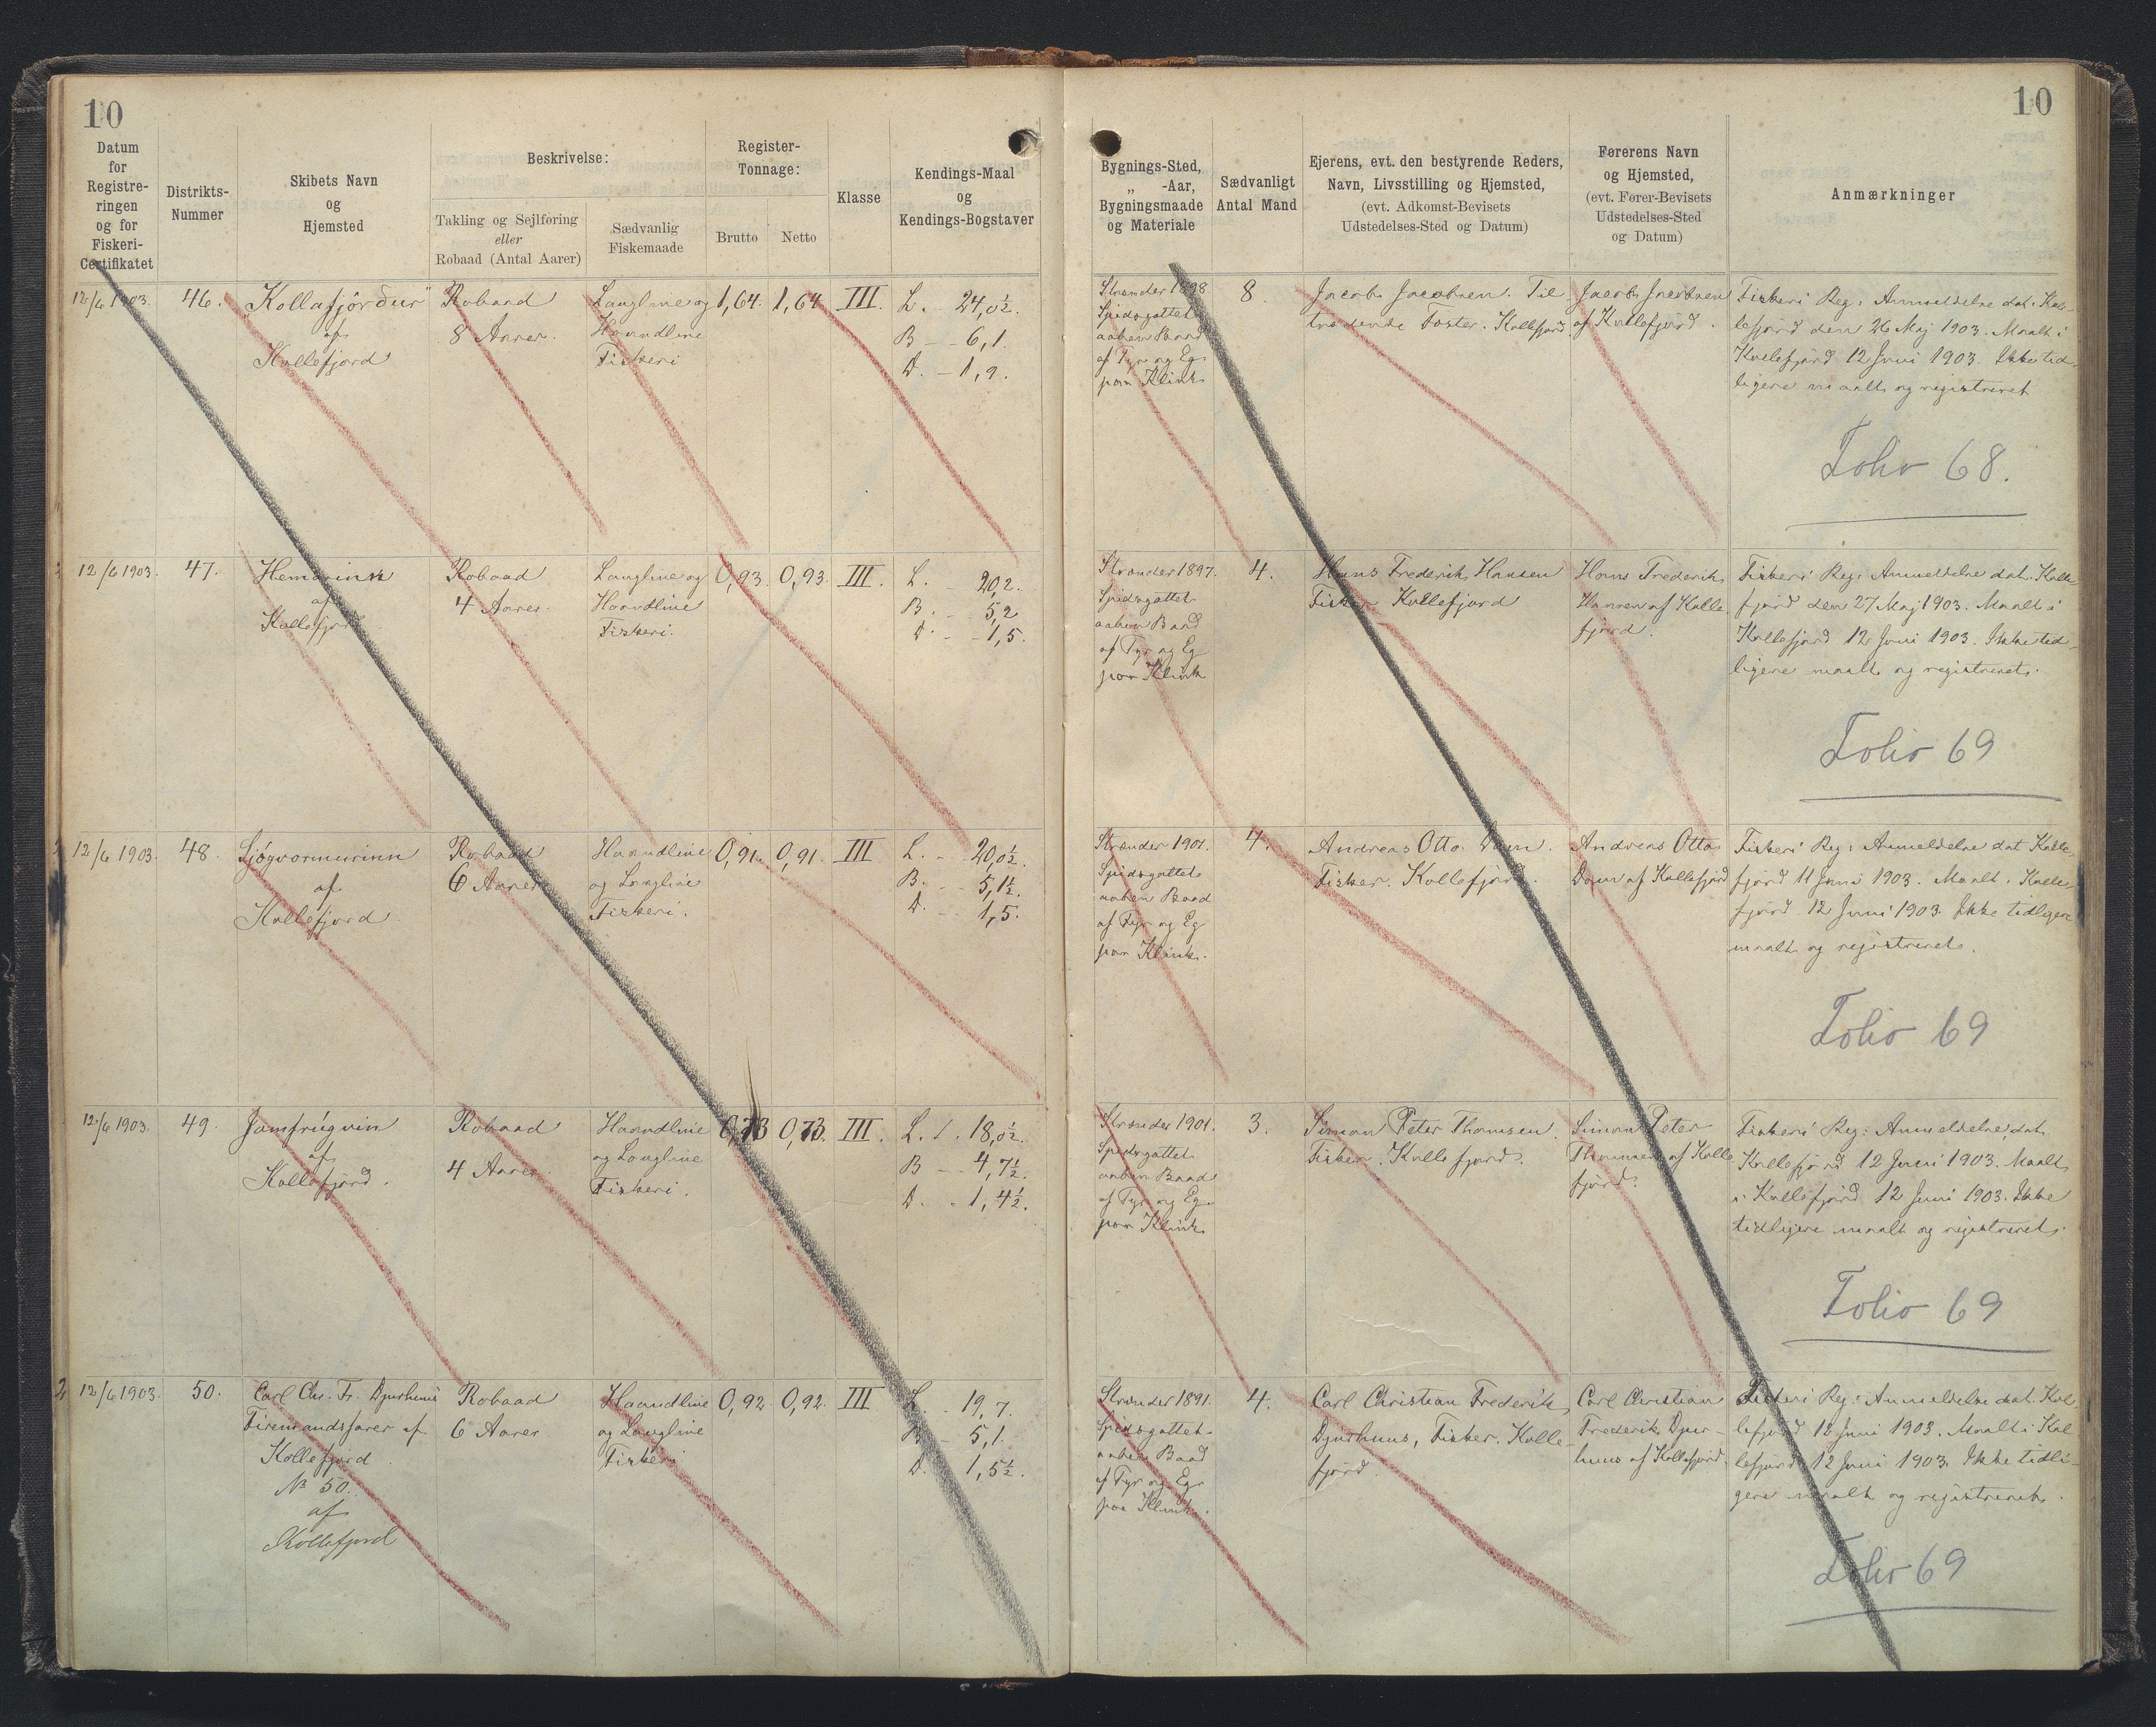 10
Datum
for
Registre-
ringen
og for
Fiskeri-
Certifikatet
Distrikts-
Nummer
Skibets Navn
og
Hjemsted
Beskrivelse:
Takling og Sejlføring
eller
Robaad (Antal Aarer)
Sædvanlig
Fiskemaade
Register-
Tonnage:
Brutto
Netto
Klasse
Kendings-Maal
og
Kendings-Bogstaver
12/6 1903.
46.
"Kollafjørður"
af
Kollefjord
Robaad
8 Aarer.
Langline og
Haandline
Fiskeri
1,64.
1,64
III.
L. - 24,0½.
B - - 6,1.
D. - 1,9.
12/6 1903.
47.
af
Kollefjord
Robaad
4 Aarer.
Langline og
Haandline
Fiskeri.
0,93.
0,93.
III.
L. - 20,2.
B. - 5,2
D. - - 1,5.
12/6 1903.
48.
Sjógvarmurinn
af
Kollefjord
Robaad
6 Aarer
Haandline
og Langline
Fiskeri.
0,91.
0,91.
III
L. - 20,0½.
B. - - 5,1½.
D. - 1,5.
12/6 1903.
49.
Jomfrúgvin
af
Kollefjord.
Robaad
4 Aarer.
Haandline
og Langline
Fiskeri.
0,73
0,73.
III.
L. - 18,0½.
B - - 4,7½.
D. - 1,4½.
12/6 1903.
50.
Carl Chr. Fr. Djurhuus
Firemandsfarer af
Kollefjord
No 50.
af
Kollefjord
Robaad
6 Aarer
Haandline
og Langline
Fiskeri
0,92
0,92.
III
L. - 19,7.
B - 5,1.
D. 1,5½.
10
Bygnings-Sted,
„ -Aar,
Bygningsmaade
og Materiale
Sædvanligt
Antal Mand
Ejerens, evt. den bestyrende Reders,
Navn, Livsstilling og Hjemsted,
(evt. Adkomst-Bevisets
Udstedelses-Sted og Datum)
Førerens Navn
og Hjemsted,
(evt. Fører-Bevisets
Udstedelses-Sted
og Datum)
Anmærkninger
Strænder 1898
Spidsgattet
aaben Baad
af Fyr og Eg
paa Klink
8
Jacob Jacobsen. Til
trædende Foster. Kollefjord
Jacob Jacobsen
af Kollefjord.
Fiskeri Reg: Anmeldelse dat. Kol-
lefjord den 26 Maj 1903. Maalt i
Kollefjord 12 Juni 1903. Ikke tid-
ligere maalt og registreret
Folio 68.
Strænder 1897.
Spidsgattet
aaben Baad
af Fyr og Eg
paa Klink
4.
Hans Frederik Hansen
Fisker Kollefjord
Hans Frederik
Hansen af Kolle
fjord.
Fiskeri Reg: Anmeldelse dat. Kolle
fjord den 27 Maj 1903. Maalt i
Kollefjord 12 Juni 1903. Ikke tid-
ligere maalt og registreret.
Folio 69
Strænder 1901.
Spidsgattet
aaben Baad
af Fyr og Eg
paa Klink.
4.
Andreas Otto Dam.
Fisker. Kollefjord.
Andreas Otto
Dam af Kollefjord
Fiskeri Reg: Anmeldelse dat Kolle-
fjord 11 Juni 1903. Maalt i Kolle-
fjord 12 Juni 1903. Ikke tidligere
maalt og registreret.
Folio 69
Strænder 1901.
Spidsgattet
aaben Baad
af Fyr og Eg
paa Klink
3.
Simon Peter Thomsen.
Fisker. Kollefjord.
Simon Peter
Thomsen af Kolle
fjord.
Fiskeri Reg: Anmeldelse dat.
Kollefjord 12 Juni 1903. Maalt
i Kollefjord 12 Juni 1903. Ikke
tidligere maalt og registreret.
Folio 69
Strænder 1891.
Spidsgattet
aaben Baad
af Fyr og Eg
paa Klink.
4.
Carl Christian Frederik
Djurhuus, Fisker. Kolle-
fjord.
Carl Christian
Frederik Djur-
huus af Kollefjord.
Fiskeri Reg: Anmeldelse dat. Kol-
lefjord 12 Juni 1903. Maalt i Kol
lefjord 12 Juni 1903. Ikke tidli-
gere maalt og registreret.
Folio 69